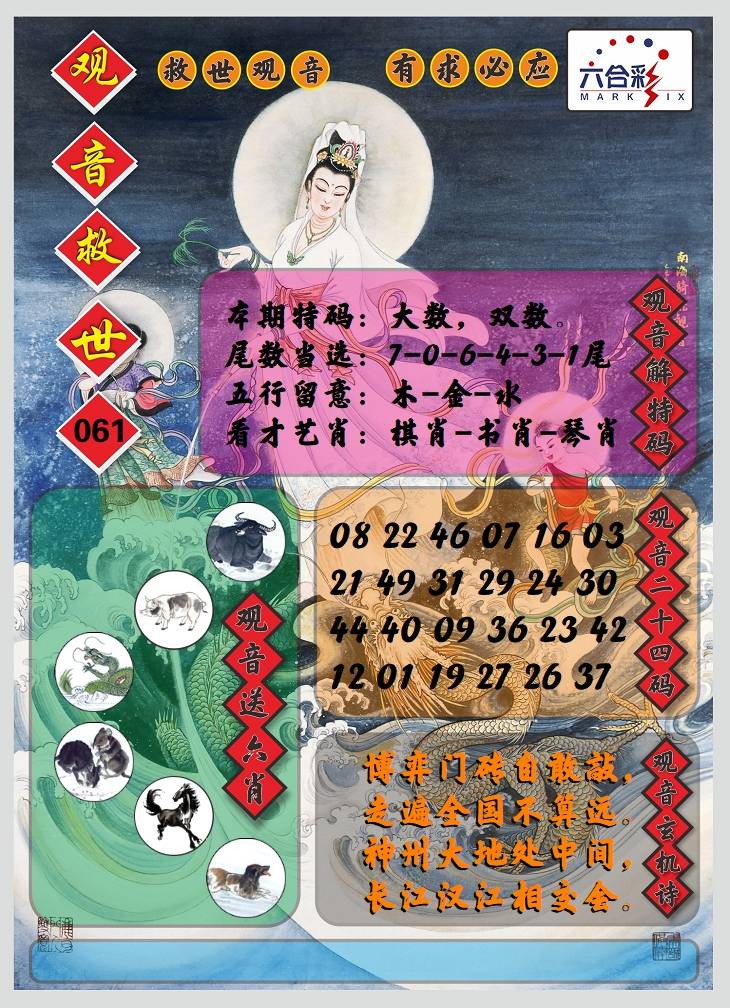 观音救世
061
救世观音 有求必应
六合彩
MARK SIX
本期特码：大数，双数。
尾数当选：7-0-6-4-3-1尾
五行留意：木-金-水
看才艺肖：棋肖-书肖-琴肖
观音解特码
08 22 46 07 16 03
21 49 31 29 24 30
44 40 09 36 23 42
12 01 19 27 26 37
观音二十四码
观音送六肖
博弈门砖自敢敲，
走遍全国不算远。
神州大地处中间，
长江汉江相交会。
观音玄机诗